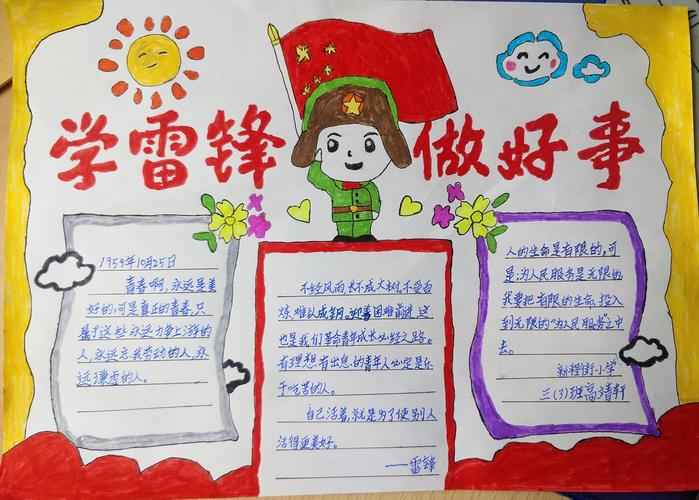 学雷锋 做好事
1959年10月25日
青春啊，永远是美
好的，可是真正的青春，只
属于这些永远力争上游的
人，永远忘我劳动的人，永
远谦虚的人。
不经风雨，长不成大树，不受百
炼，难以成钢。迎着困难前进，这
也是我们革命青年成长必经之路。
有理想，有出息的青年人必定是乐
于吃苦的人。
自己活着，就是为了使别人
活得更美好。
——雷锋
人的生命是有限的，可
是，为人民服务是无限的，
我要把有限的生命，投入
到无限的“为人民服务”之中
去。
街小学
三（3）班高 轩